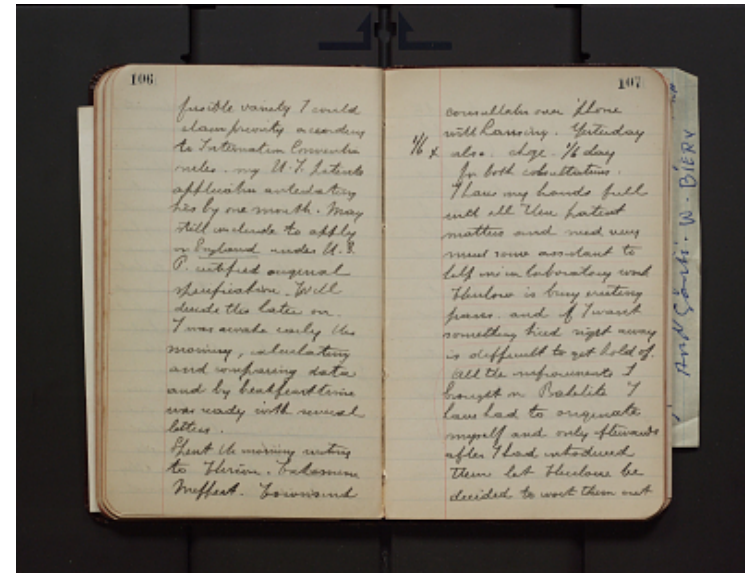 106
fusible variety I could
claim priority according
to Internation Convention
rules. my U.S. patents
application antedating
his by one month. May
still conclude to apply
in England under U.S.
P. certified original
specification. Will
decide this later on.
I was awake early this
morning, calculating
and comparing data
and by breakfast time
was ready with several
letters.
Spent the morning writing
to Takamine
Meffert. Townsend
107
consultation over phone
with Lansing. Yesterday
1/6 x also. chge. 1/6 day
for both consultations.
I have my hands full
with all these patent
matters and need very
much some assistant to
help me in laboratory work
Thurlow is busy erecting
and if I want
something tried right away
is difficult to get hold of.
All the improvements I
brought in Bakelite I
have had to originate
myself and only afterwards
after I had introduced
them let Thurlow be
decided to work them out
W. BIERY